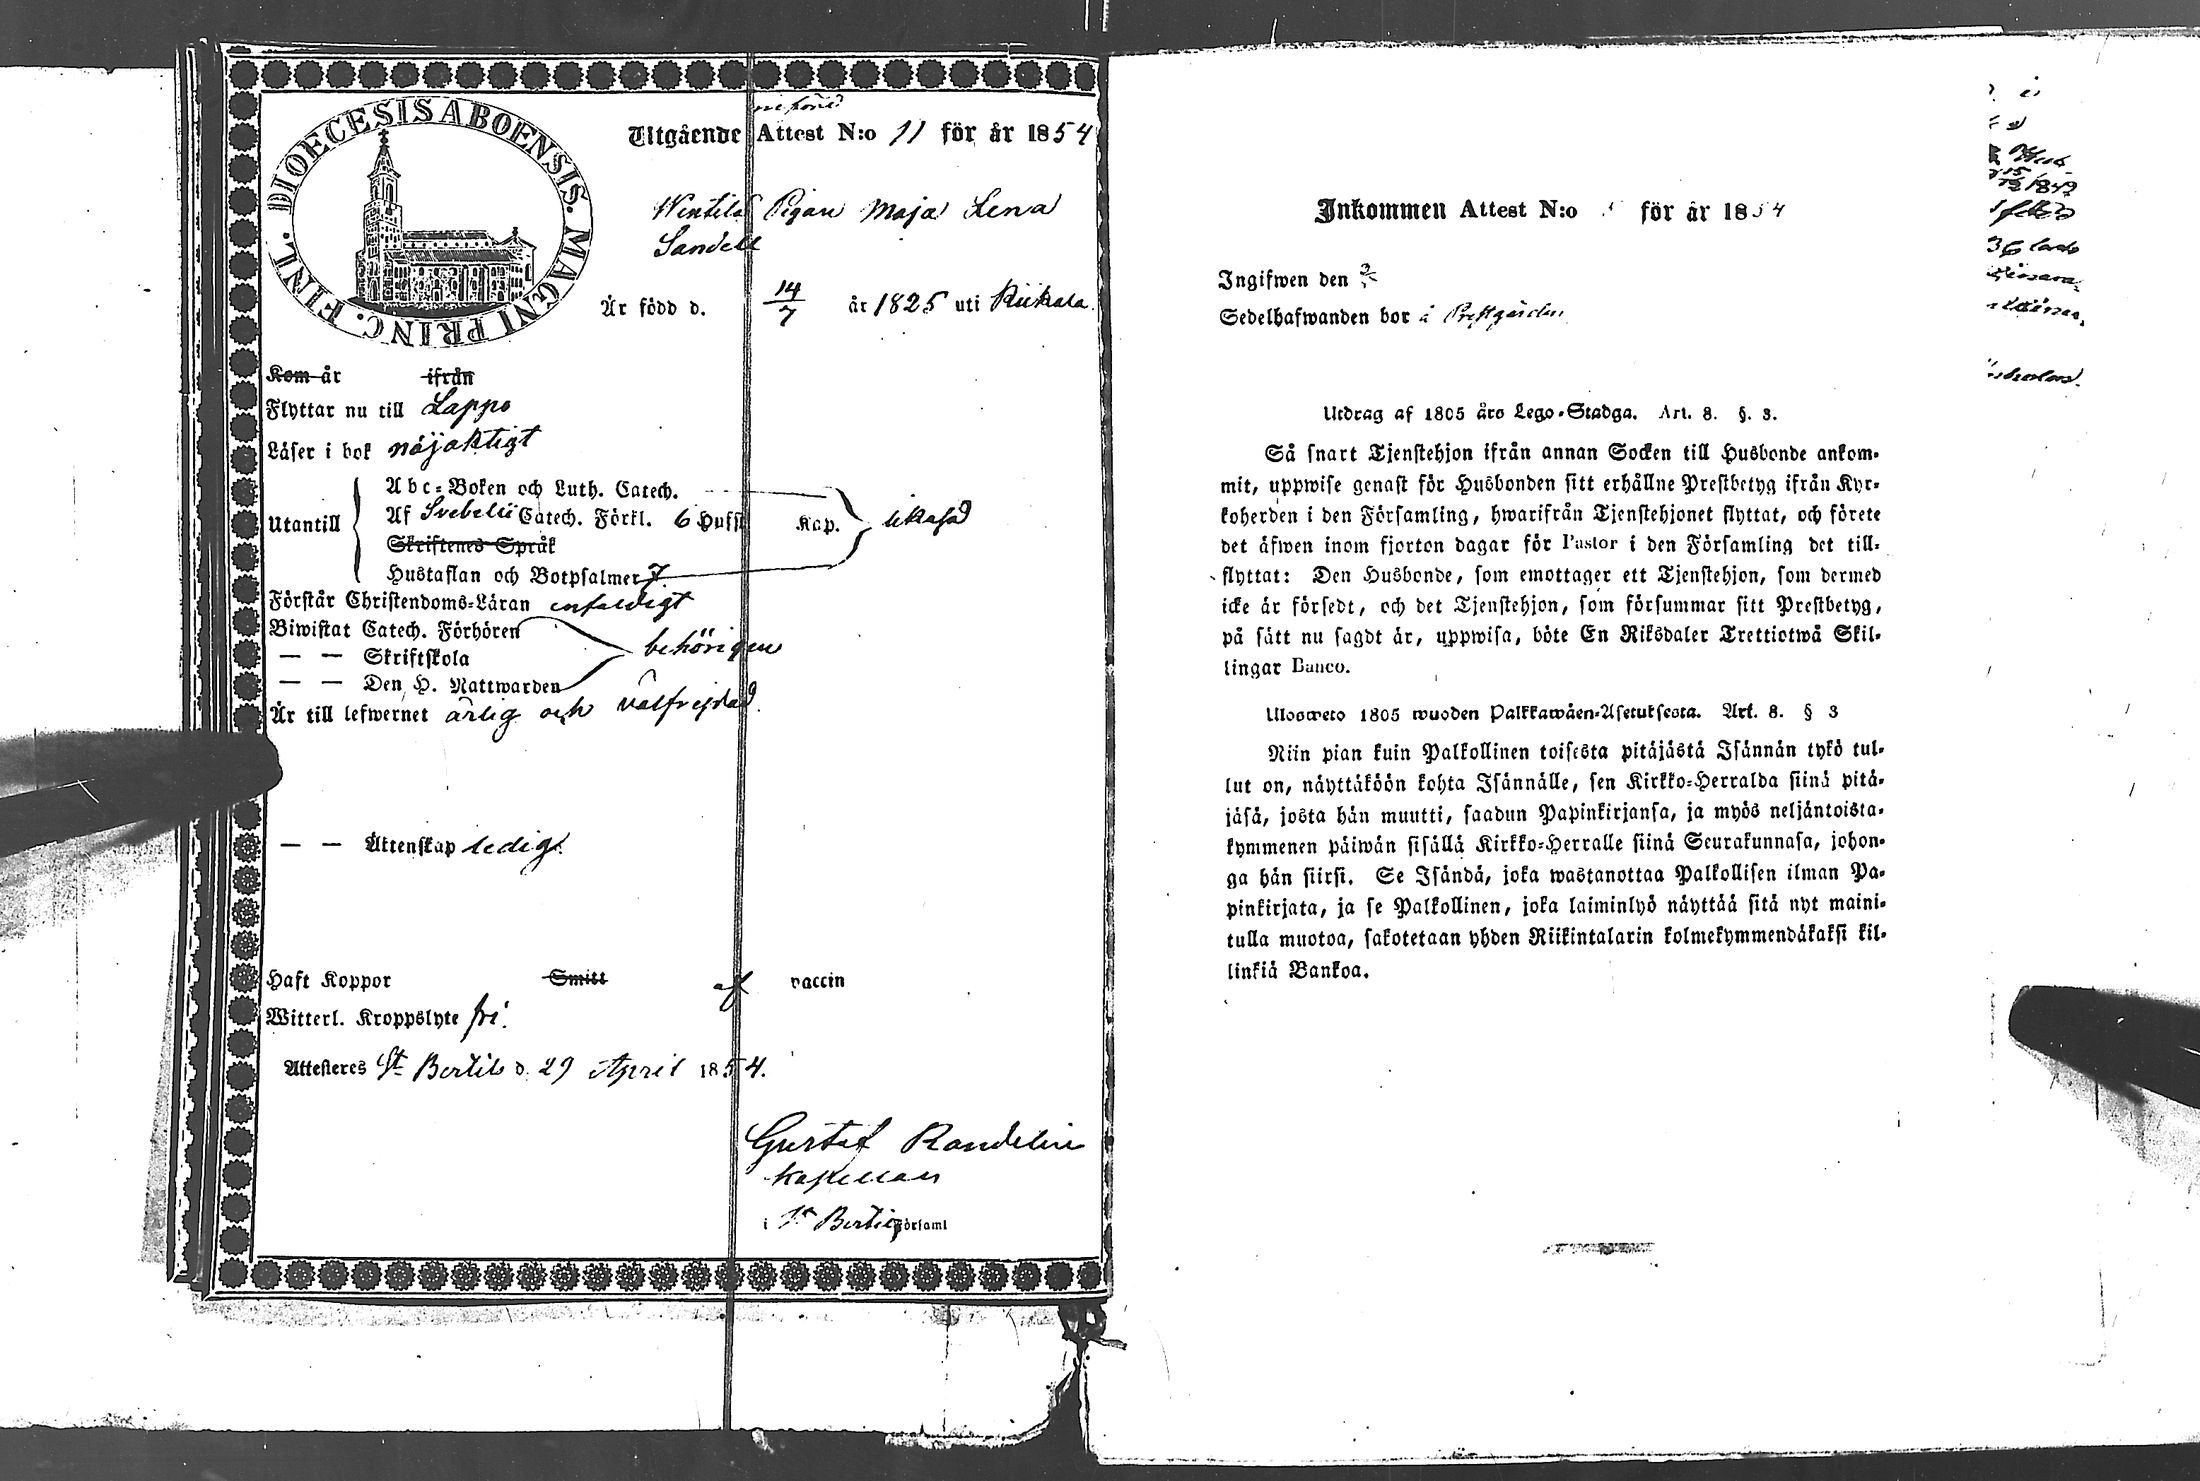 DIOECESIS ABOENSIS. MAGNI PRINC. FINL.
Utgående Attest N:o 11 för år 1854
Wentilä Pigan Maja Lena
Sandell
Är född d. 14/7 år 1825 uti Kiikala
Kom år ifrån
Flyttar nu till Lappo
Läser i bok nöjaktigt
Utantill
Abc-Boken och Luth. Catech.
Af Svebelii Catech. Förkl. 6 Hufst Kap.
Skriftenes Språk
Hustaflan och Botpsalmer 7.
likaså
Förstår Christendoms-Läran enfaldigt
Biwistat Catech. Förhören
— — Skriftskola
— — Den H. Nattwarden
behörigen
Är till lefwernet ärlig och välfrejdad.
— — Äktenskap ledig.
Haft Koppor Smitt af vaccin
Witterl. Kroppslyte fri.
Attesteres St Bertils d. 29 April 1854.
Gustaf Randelin
Kapellan
i St Bertils Församl
Inkommen Attest N:o för år 1854
Ingifwen den
Sedelhafwanden bor å Prestgården
Utdrag af 1805 års Lego-Stadga. Art. 8. §. 3.
Så snart Tjenstehjon ifrån annan Socken till Husbonde ankom-
mit, uppwise genast för Husbonden sitt erhållne Prestbetyg ifrån Kyr-
koherden i den Församling, hwarifrån Tjenstehjonet flyttat, och förete
det äfwen inom fjorton dagar för Pastor i den Församling det till-
flyttat: Den Husbonde, som emottager ett Tjenstehjon, som dermed
icke är försedt, och det Tjenstehjon, som försummar sitt Prestbetyg,
på sätt nu sagdt är, uppwisa, böte En Riksdaler Trettiotwå Skil-
lingar Banco.
Uloswеto 1805 wuoden Palkkawäen-Asetuksesta. Art. 8. § 3
Niin pian kuin Palkollinen toisesta pitäjästä Isännän tykö tul-
lut on, näyttäköön kohta Isännälle, sen Kirkko-Herralda siinä pitä-
jäsä, josta hän muutti, saadun Papinkirjansa, ja myös neljäntoista-
kymmenen päiwän sisällä Kirkko-Herralle siinä Seurakunnasa, johon-
ga hän siirsi. Se Isändä, joka wastanottaa Palkollisen ilman Pa-
pinkirjata, ja se Palkollinen, joka laiminlyö näyttää sitä nyt maini-
tulla muotoa, sakotetaan yhden Riikintalarin kolmekymmendäkaksi kil-
linkiä Bankoa.